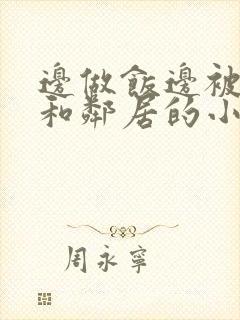 邊做飯邊被
和鄰居的小
周永寧